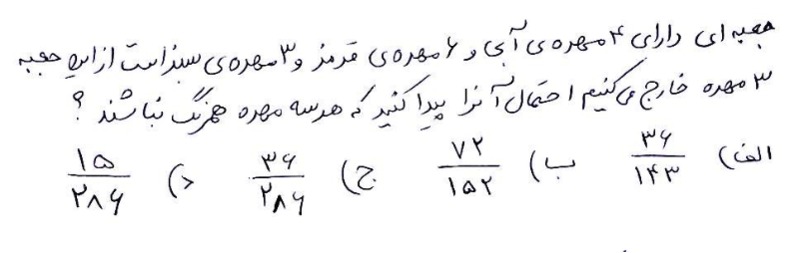 جعبه ای دارای ۴ مهره ی آبی و ۶ مهره ی قرمز و ۳ مهره ی سبز است از این جعبه
۳ مهره خارج می کنیم احتمال آنرا پیدا کنید که هر سه مهره همرنگ نباشند ؟
الف) ۳۶/۱۴۳ ب) ۷۲/۱۵۲ ج) ۳۶/۲۸۶ د) ۱۵/۲۸۶